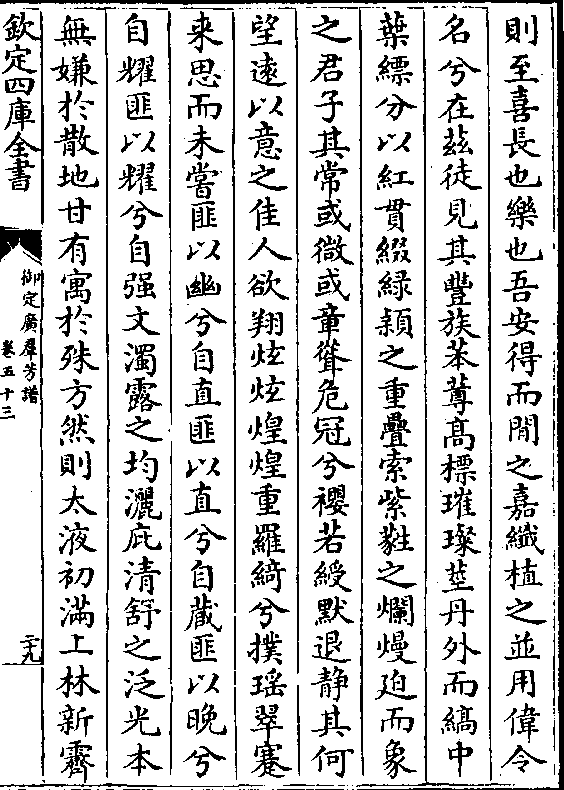 則至喜長也樂也吾安得而閒之嘉纖植之並用偉令
名兮在茲徒見其豐族苯䔿髙標璀璨莖丹外而縞中
葉縹分以紅貫綴緑頴之重疊索紫蘳之爛熳廹而象
之君子其常或微或童聳危冠兮禝若綬默退静其何
望逺以意之佳人欲翔炫炫煌煌重羅綺兮撲瑶翠蹇
来思而未嘗匪以幽兮自直匪以直兮自蔵匪以晚兮
自耀匪以耀兮自强文濁露之均灑庇清舒之泛光本
無嫌於散地甘有寓於殊方然則太液初滿上林新霽
欽定四庫全書
御定廣羣芳譜
卷五十三
二十九